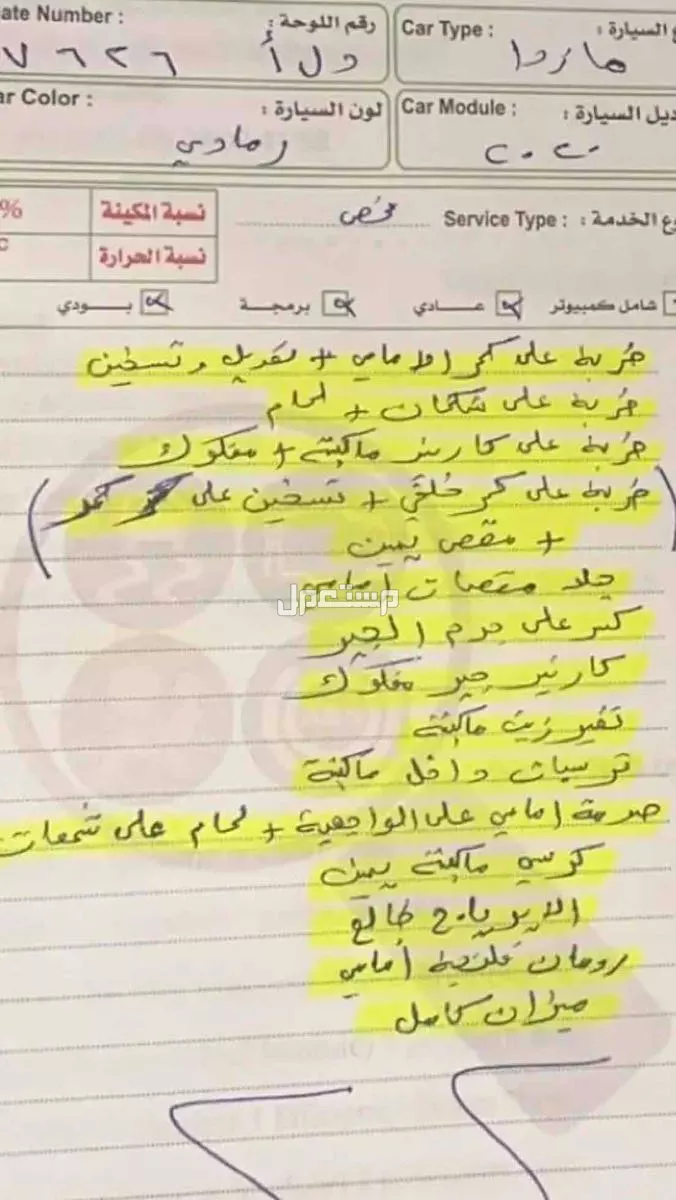 ate Number : رقم اللوحة :
د ل أ ٧٦٢٦
Car Type : ع السيارة :
مازدا
ar Color : لون السيارة :
رمادي
Car Module : ديل السيارة :
٢٠٢٠
وع الخدمة : Service Type : فحص
نسبة المكينة %
نسبة الحرارة C
شامل كمبيوتر عادي برمجة بودي
ضربة على كمر امامي + تعديل وتسخين
ضربة على شكمان + لحام
ضربة على كارتير ماكينة + مفكوك
(ضربة على كمر خلفي + تسخين على كمر)
+ مقص يمين
جلد مقصات أمامي
كسر على جرم الجير
كارتير جير مفكوك
تغير زيت ماكينة
ترسبات داخل ماكينة
صدمة امامي على الواجهية + لحام على شمعات
كرسي ماكينة يمين
الايرباج طالع
رومان بلي أمامي
ميزان كامل
مستعمل